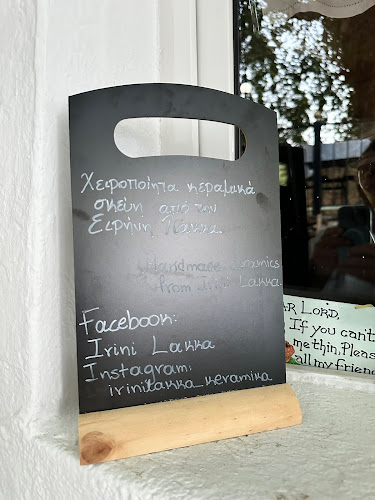 Χειροποίητα κεραμικά
σκεύη από την
Ειρήνη Λάκκα.
Handmade ceramics
from Irini Lakka.
Facebook:
Irini Lakka
Instagram:
irinilakka_keramika
AR LORD,
If you can't
me thin, Pleas
all my frien